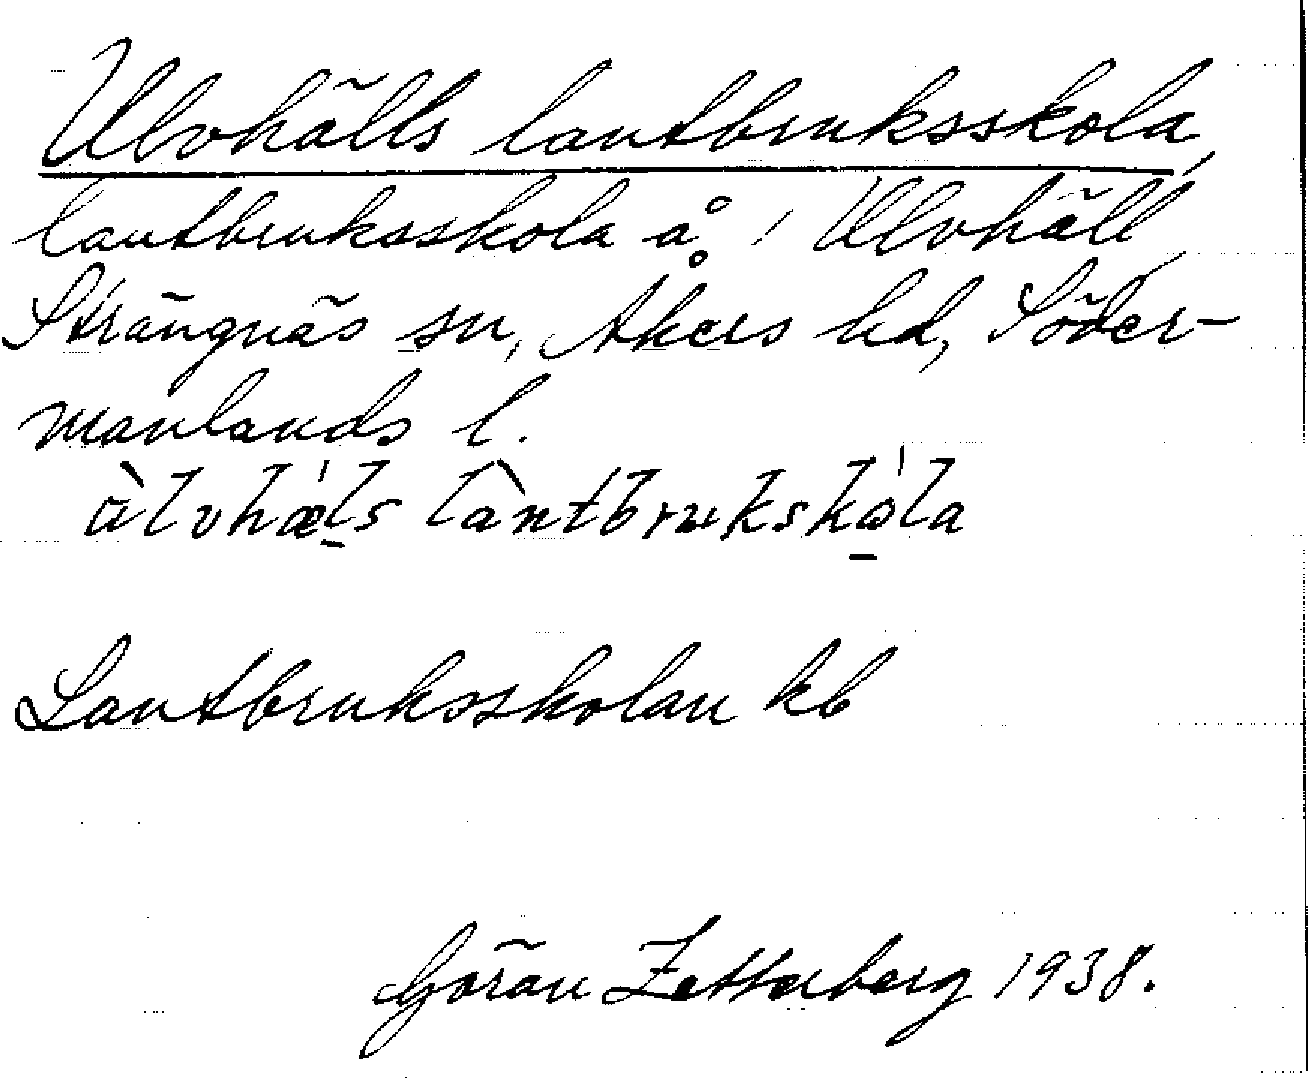 Ulvhälls lantbruksskola,
lantbruksskola å 1 Ulvhäll,
Strängnäs sn, Åkers hd, Söder-
manlands l.
Lantbruksskolan kb
Göran Zetterberg 1938.